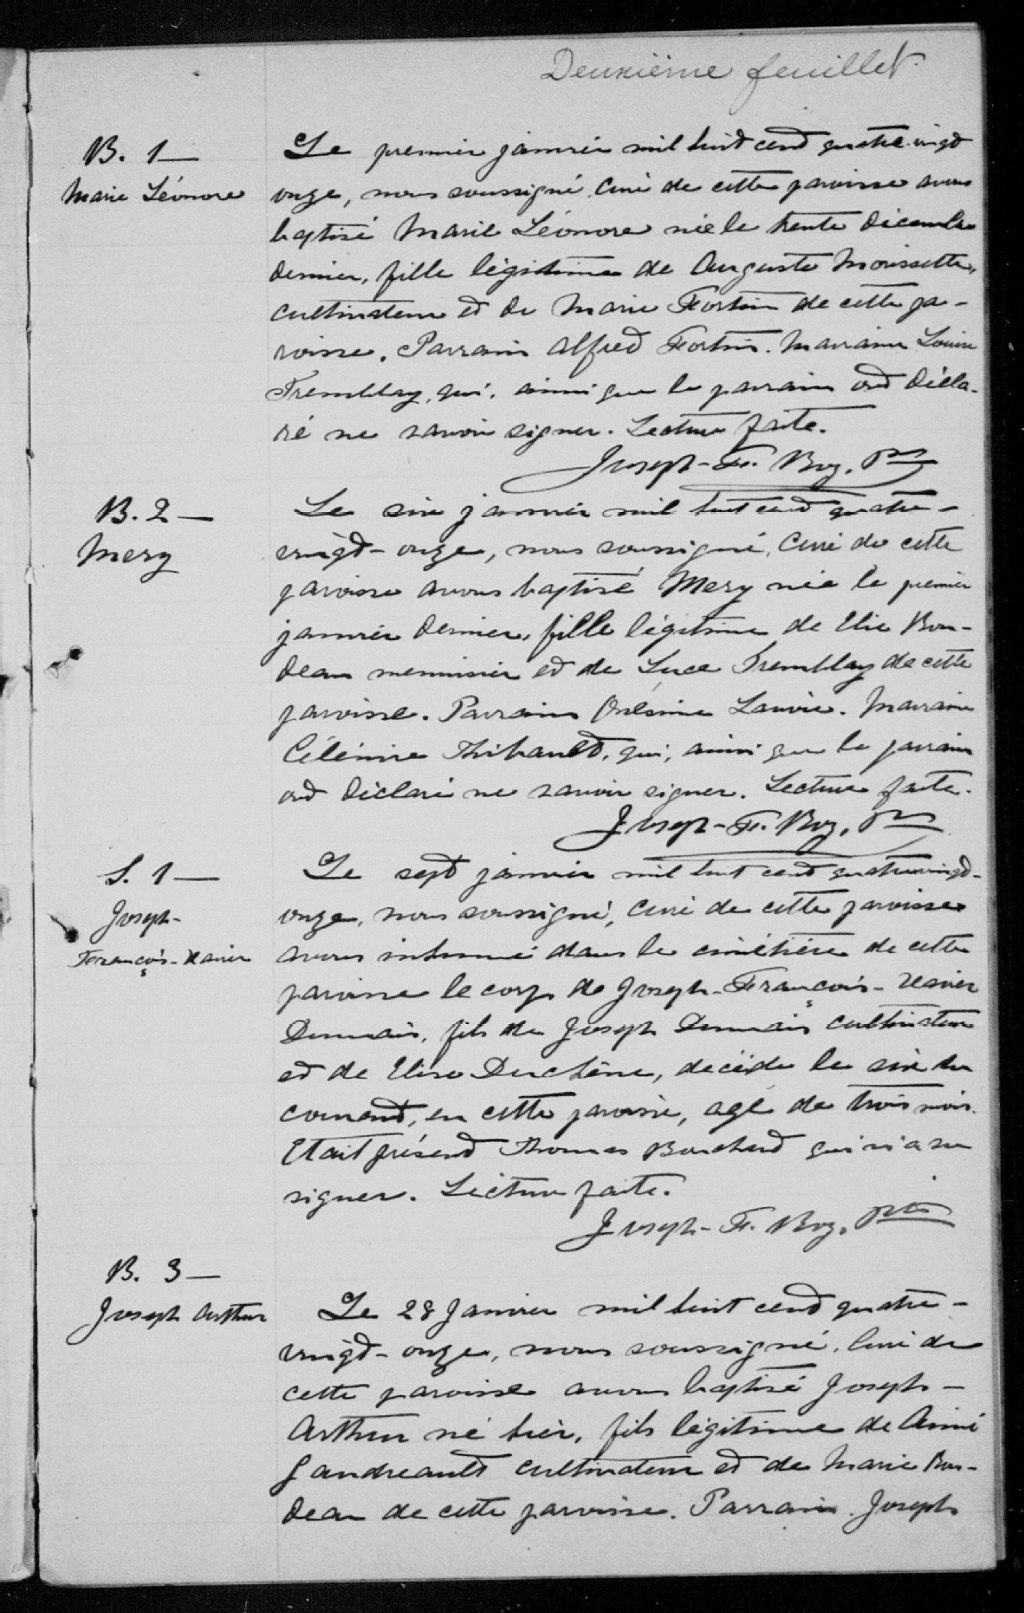 Deuxième feuillet.
B. 1 —
Marie Léonore
Le premier janvier mil huit cent quatre-vingt
onze, nous soussigné Curé de cette paroisse avons
baptisé Marie Léonore née le trente décembre
dernier, fille légitime de Auguste Morissette,
cultivateur et de Marie Fortin de cette pa-
roisse. Parrain Alfred Fortin. Marraine Louise
Tremblay, qui, ainsi que le parrain ont décla-
ré ne savoir signer. Lecture faite.
Joseph-F. Roy, Ptre
B. 2 —
Mery
Le six janvier mil huit cent quatre-
vingt-onze, nous soussigné, Curé de cette
paroisse avons baptisé Mery née le premier
janvier dernier, fille légitime de Elie Bou-
deau menuisier et de Luce Tremblay de cette
paroisse. Parrain Onésime Lavoie. Marraine
Célénire Thibault, qui, ainsi que le parrain
ont déclaré ne savoir signer. Lecture faite.
Joseph-F. Roy, Ptre
S. 1 —
Joseph-
François-Xavier
Le sept janvier mil huit cent quatrevingt-
onze, nous soussigné, curé de cette paroisse
avons inhumé dans le cimétière de cette
paroisse le corps de Joseph-François-Xavier
Dumais, fils de Joseph Dumais cultivateur
et de Elise Duchêne, décédé le six du
courant, en cette paroisse, agé de trois mois.
Etait présent Thomas Bouchard qui n'a su
signer. Lecture faite.
Joseph-F. Roy, Ptre
B. 3 —
Joseph Arthur
Le 28 Janvier mil huit cent quatre-
vingt-onze, nous soussigné, Curé de
cette paroisse avons baptisé Joseph-
Arthur né hier, fils légitime de Aimé
Gaudreault cultivateur et de Marie Bou-
deau de cette paroisse. Parrain Joseph